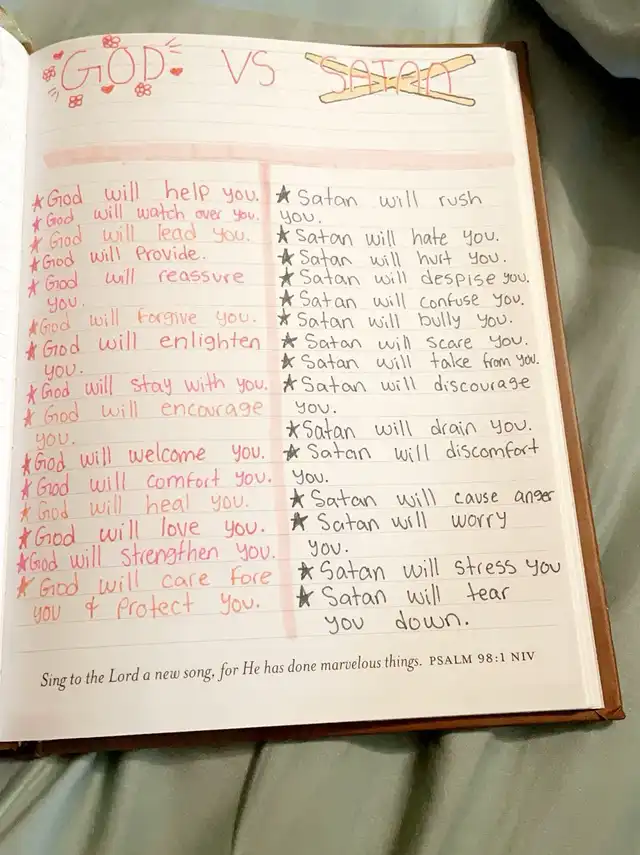 GOD VS SATAN
★God will help you.
★God will watch over you.
★God will lead you.
★God will Provide.
★God will reassure
you.
★God will forgive you.
★God will enlighten
you.
★God will stay with you.
★God will encourage
you.
★God will welcome you.
★God will comfort you.
★God will heal you.
★God will love you.
★God will strengthen you.
★God will care fore
you & Protect you.
★Satan will rush
you.
★Satan will hate you.
★Satan will hurt you.
★Satan will despise you.
★Satan will confuse you.
★Satan will bully you.
★Satan will scare you.
★Satan will take from you.
★Satan will discourage
you.
★Satan will drain you.
★Satan will discomfort
you.
★Satan will cause anger
★Satan will worry
you.
★Satan will stress you
★Satan will tear
you down.
Sing to the Lord a new song, for He has done marvelous things. PSALM 98:1 NIV